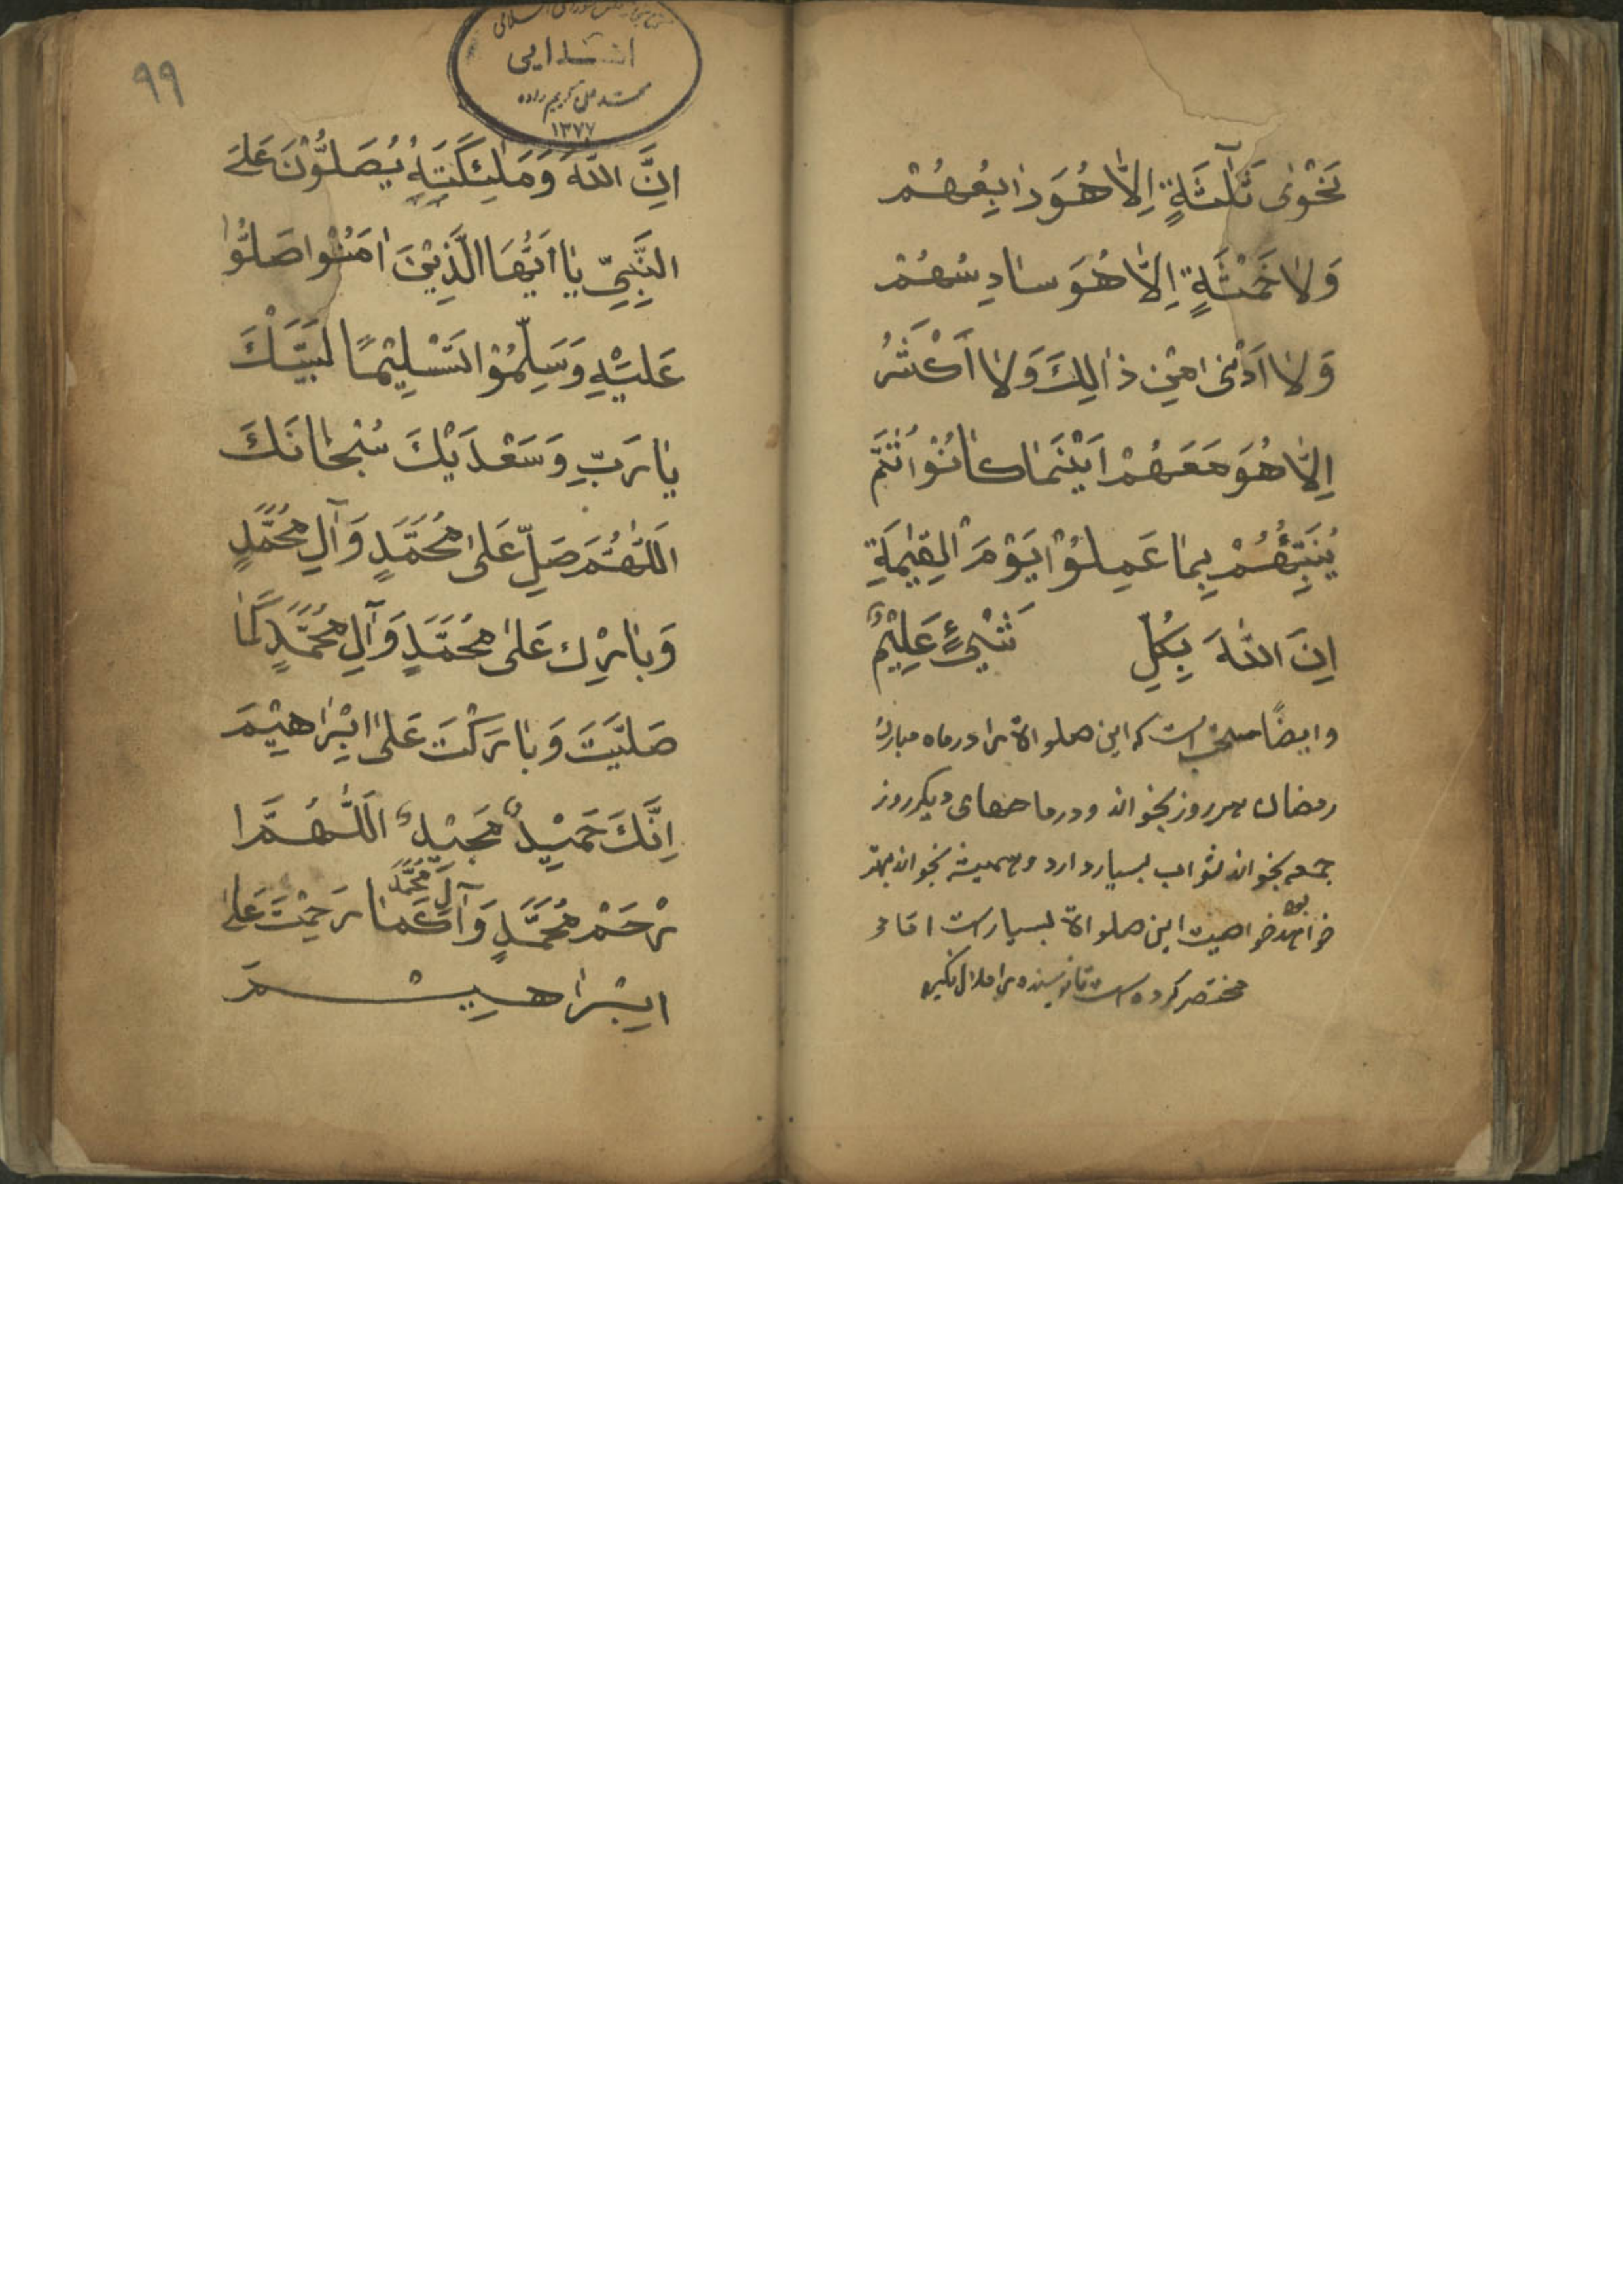 نَجْوٰى ثَلٰثَةٍ اِلَّا هُوَ رٰابِعُهُمْ
وَلٰا خَمْسَةٍ اِلَّا هُوَ سٰادِسُهُمْ
وَلٰا اَدْنٰى مِنْ ذٰالِكَ وَلٰا اَكْثَرُ
اِلَّا هُوَ مَعَهُمْ اَيْنَمٰا كٰانُوْا ثُمَّ
يُنَبِّئُهُمْ بِمٰا عَمِلُوْا يَوْمَ الْقِيٰمَةِ
اِنَ اللّٰهَ بِكُلِّ شَيْئٍ عَلِيْمٌ
وایضًا است که این صلواة را در ماه مبارک
رمضان هر روز بخواند ودر ماههای دیکر روز
جمعه بخواند ثواب بسیار دارد وهمیشه بخواند بهتر
خواهد بود این صلواة بسیارست اما
مختصر کرده را ملال نکیرد
۹۹
ابتدایی
کریم زاده
۱۳۷۷
اِنَّ اللّٰهَ وَمَلٰئِكَتَهُ يُصَلُّوْنَ عَلَى
النَّبِيِّ يٰا اَيُّهَا الَّذِيْنَ اٰمَنُوْا صَلُّوْا
عَلَيْهِ وَسَلِّمُوْا تَسْلِيْمًا لَبَّيْكَ
يٰا رَبِّ وَسَعْدَيْكَ سُبْحٰانَكَ
اَللّٰهُمَّ صَلِّ عَلٰى مُحَمَّدٍ وَآلِ مُحَمَّدٍ
وَبٰارِك عَلٰى مُحَمَّدٍ وَآلِ مُحَمَّدٍ كَمٰا
صَلَيَّتَ وَبٰارَكْتَ عَلٰى اِبْرٰاهِيْمَ
اِنَّكَ حَمِيْدٌ مَجِيْدٌ اَللّٰهُمَّ ا
رْحَمْ مُحَمَّدٍ وَآلَ مُحَمَّدَ كَمٰا رَحِمْتَ عَلٰى
اِبْرٰاهِيْمَ